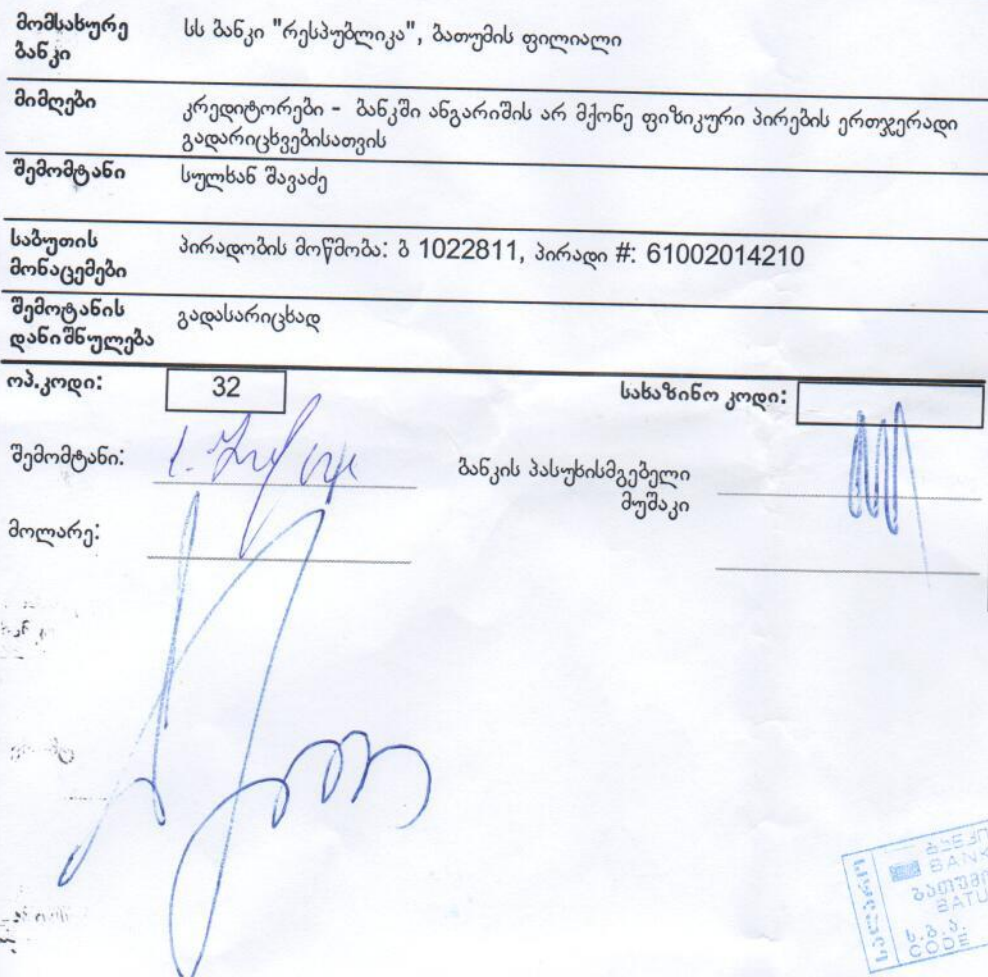 მომსახურე ბანკი
სს ბანკი "რესპუბლიკა", ბათუმის ფილიალი
მიმღები
კრედიტორები - ბანკში ანგარიშის არ მქონე ფიზიკური პირების ერთჯერადი
გადარიცხვებისათვის
შემომტანი
სულხან შავაძე
საბუთის
მონაცემები
პირადობის მოწმობა: ბ 1022811, პირადი #: 61002014210
შემოტანის
დანიშნულება
გადასარიცხად
ოპ.კოდი: 32
სახაზინო კოდი:
შემომტანი:
ბანკის პასუხისმგებელი
მუშაკი
მოლარე:
BANK
BATU
CODE